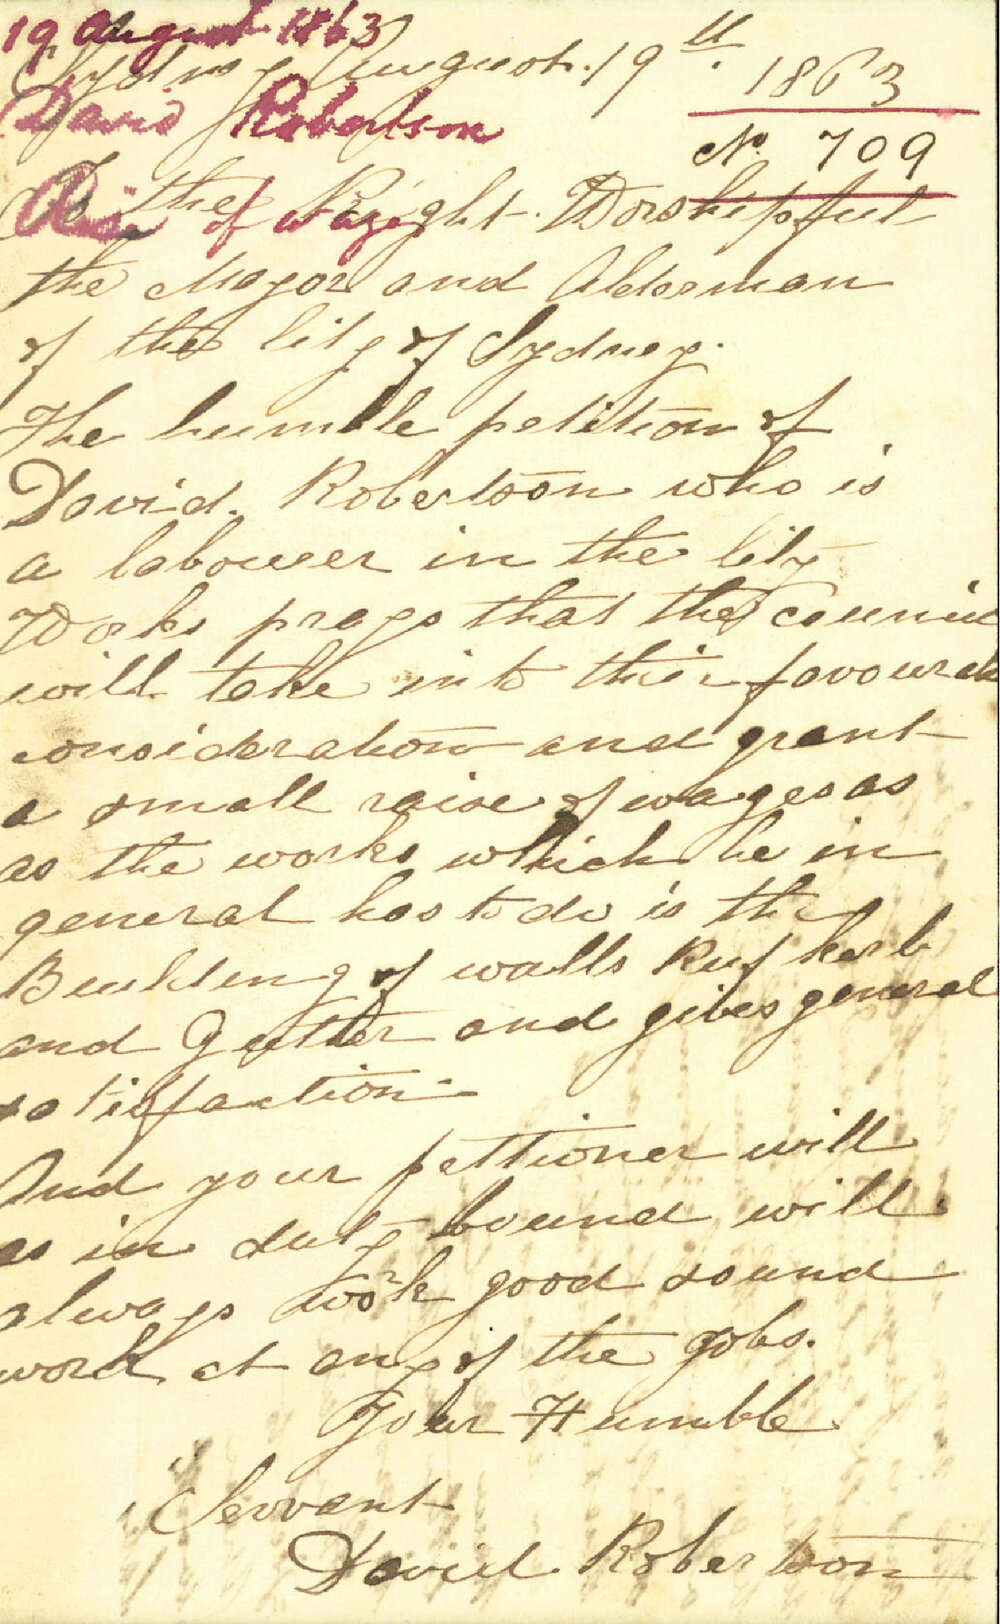 19 August 1863
Sydney August 19th. 1863
David Robertson
No. 709
Rise of wages
To the Right Worshipful
the Mayor and Alderman
of the City of Sydney.
The humble petition of
David. Robertson who is
a labouer in the City
Works prays that the Council
will take into thier favourable
consideration and grant
a small raise of wages as
as the works which he in
general has to do is the
Buulding of walls kerb
and Gutter and gives general
satisfaction
And your pettioner will
as in duty bound will
always work good sound
work at any of the jobs.
Your Humble
Servant
David Robertson